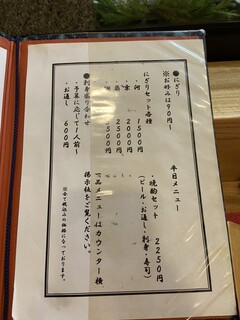 ●にぎり
※お好みは90円〜
●にぎりセット各種
・河 1500円
・京 2000円
2500円
●刺身盛り合わせ
・予算に応じて1人前〜
・お通し 600円
平日メニュー
晩酌セット 2250円
(ビール・お通し・刺身・寿司)
一品メニューはカウンター横
掲示板をご覧ください。
※全て税込みの価格になっております。